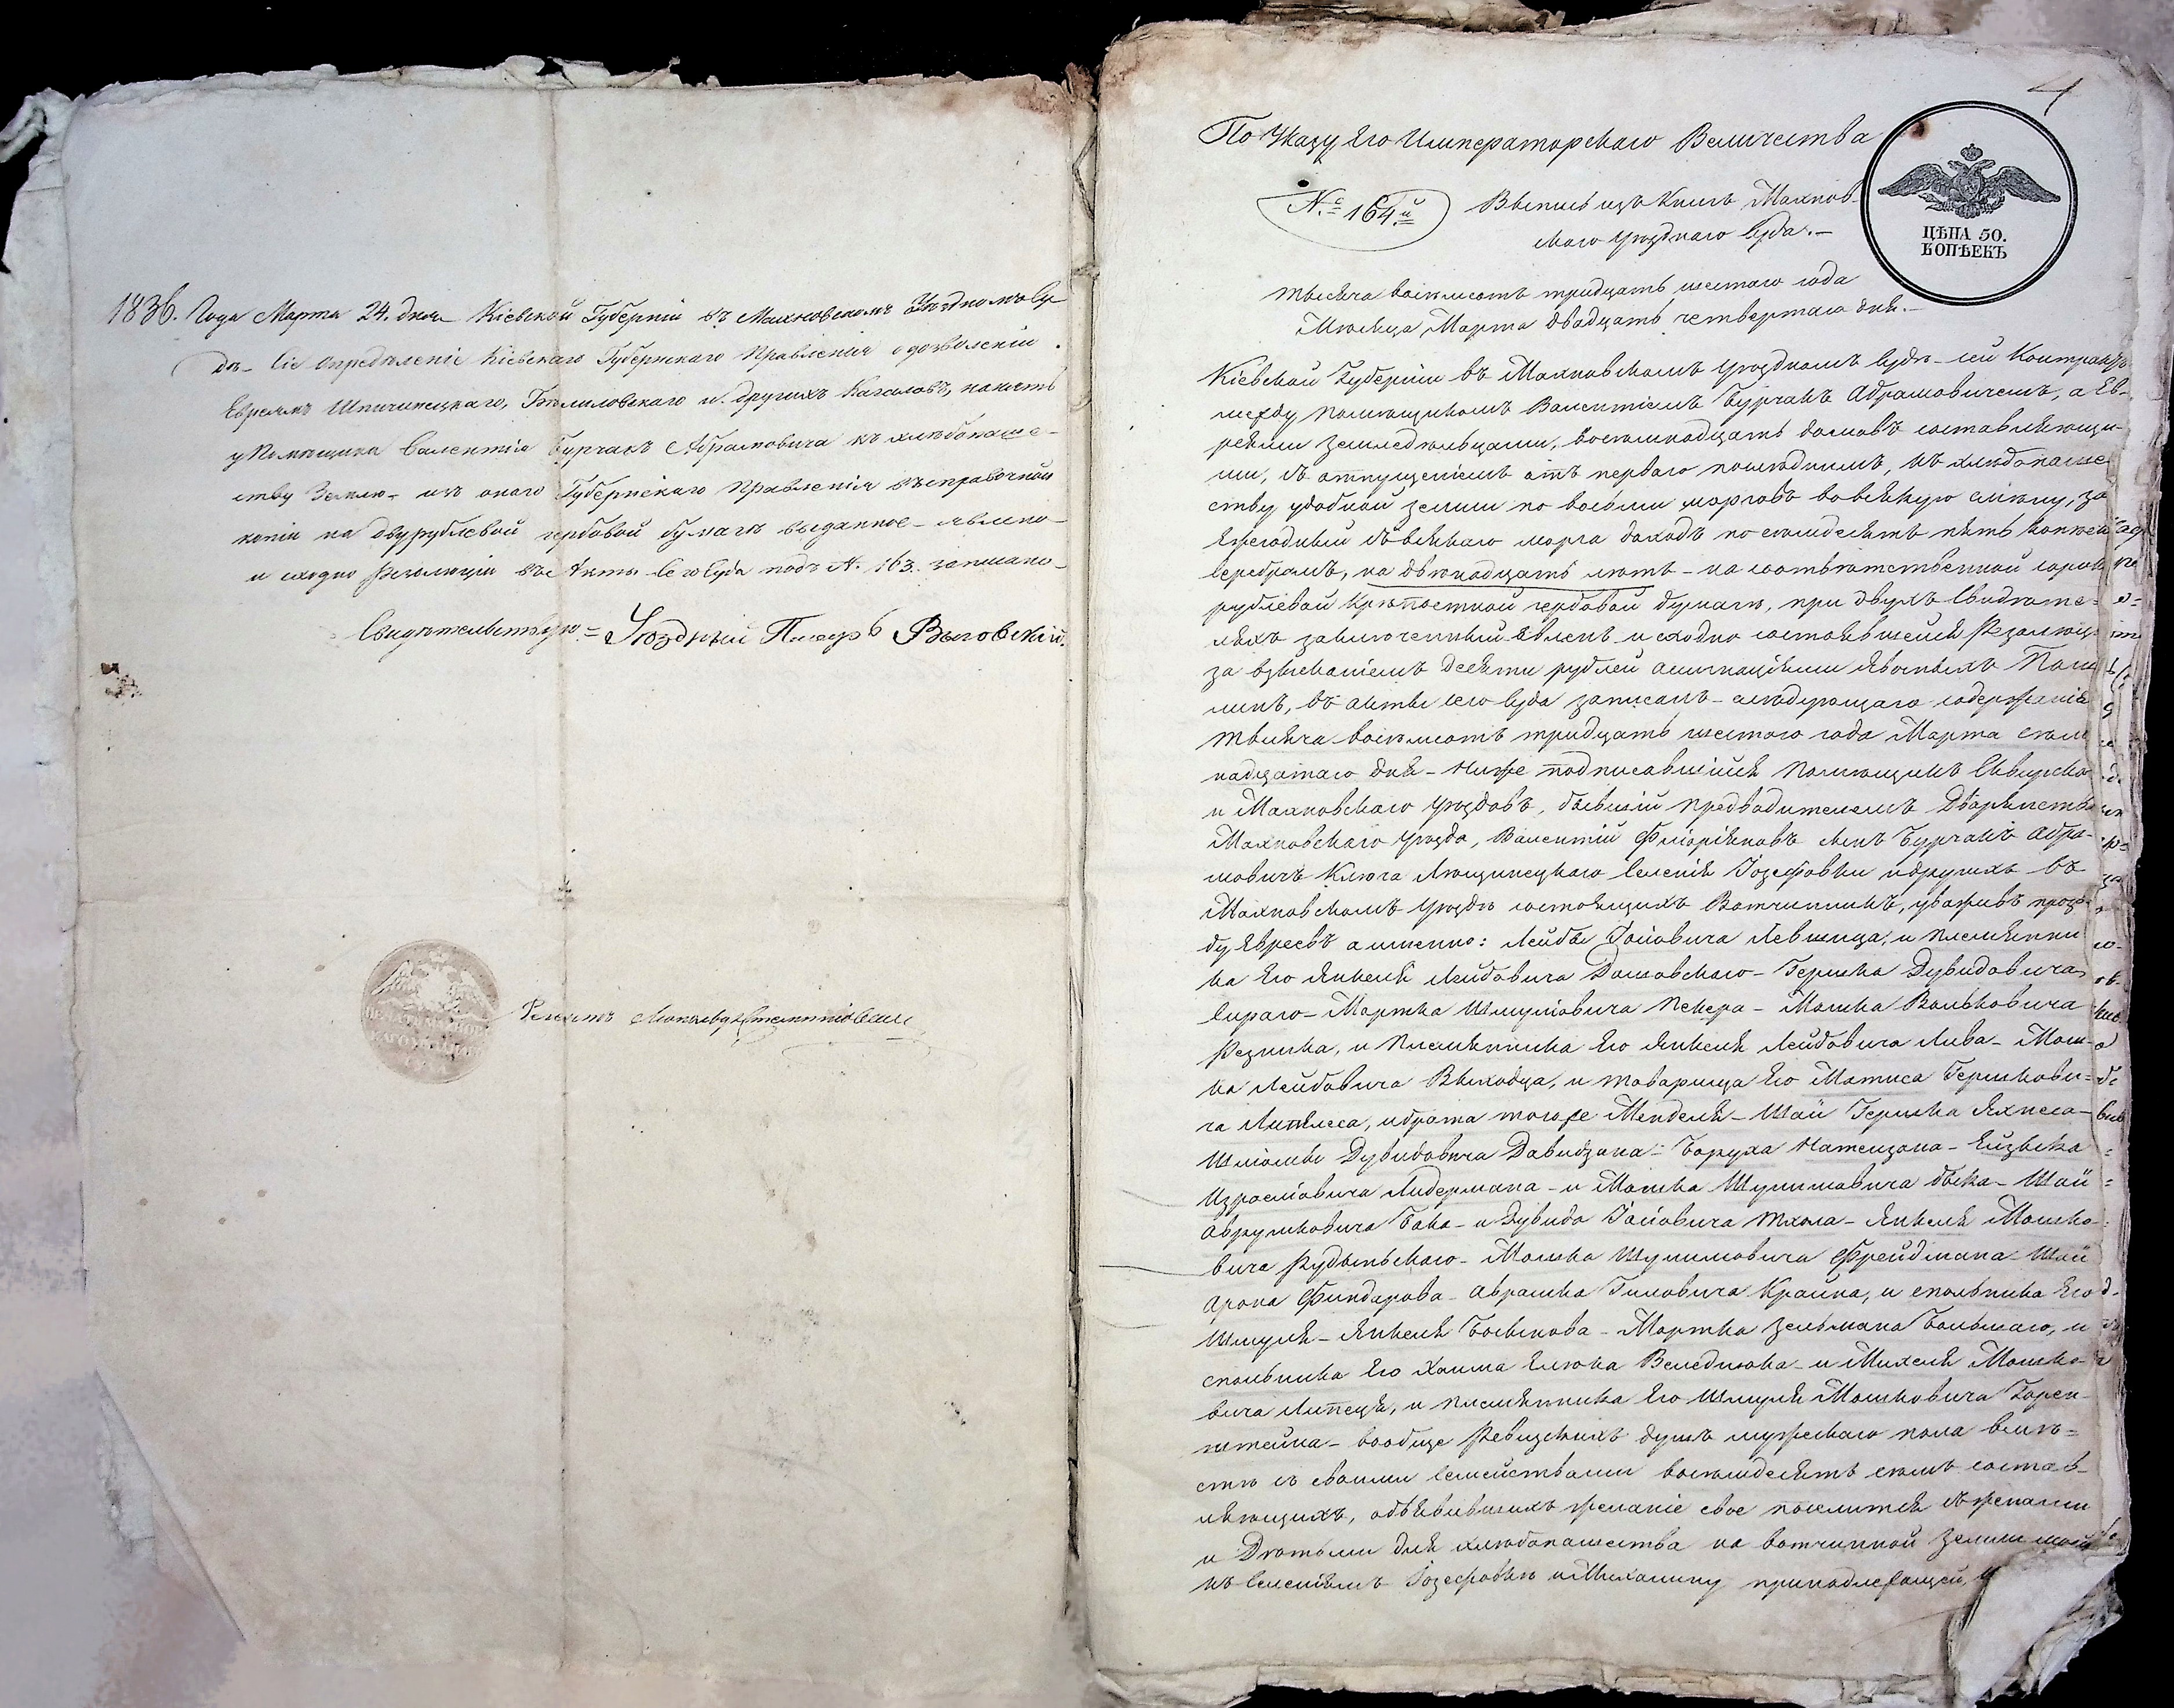 1836. Года Марта 24. дня Кіевской Губерніи въ Махновскомъ Уѣздномъ Су-
дѣ- Сіе опредѣленіе Кіевскаго Губернскаго Правленія о дозволеніи
Евреямъ Шпичинецкаго, и другихъ Кагаловъ, нанять
у Помѣщика Валентія Бурчакъ Абрамовича къ хлѣбопаше-
ству Землю- изъ онаго Губернскаго Правленія въ справочной
копіи на двурублевой гербовой бумагѣ выданное- явлено
и сходно Резолюціи въ Акты сего Суда подъ N. 163. записано-
Свидѣтельствую= Уѣздный Писарь Выговскій.
4
По Указу Его Императорскаго Величества
ЦѢНА 50.
КОПѢЕКЪ
N.º 164.й
Выпись изъ Книгъ Махнов-
скаго Уѣзднаго Суда.-
Тысяча восемьсотъ тридцать шестаго года
Мѣсяца Марта двадцать четвертаго дня.-
Кіевской Губерніи въ Махновскомъ Уѣздномъ Судѣ- сей Контрактъ
между Помѣщикомъ Валентіемъ Бурчакъ Абрамовичемъ, а Ев-
реями Земледѣльцами, восемнадцать домовъ составляющи-
ми, съ отпущеніемъ отъ перваго послѣднимъ, къ хлѣбопаше-
ству удобной земли по восьми морговъ во всякую смѣну, за
Ежегодный съ всякаго морга доходъ по семьдесятъ пять копѣекъ
серебромъ, на двѣнадцать лѣтъ- на соотвѣтственной сорокъ
рублевой Крѣпостной гербовой бумагѣ, при двухъ Свидѣте-
ляхъ заключенный явленъ и сходно состоявшейся Резолюціи
за взысканіемъ десяти рублей ассигнаціями явочныхъ Пош-
линъ, въ акты сего Суда записанъ- слѣдующаго содержанія
Тысяча восемьсотъ тридцать шестого года Марта семь
надцатаго дня- Ниже подписавшійся Помѣщикъ Сквирскаго
и Махновскаго Уѣздовъ, бывшій Предводителемъ Дворянства
Махновскаго Уѣзда, Валентій Флоріановъ сынъ Бурчакъ Абра-
мовичъ Ключа селенія Іозефовки и другихъ въ
Махновскомъ Уѣздѣ состоящихъ Вотчинникъ, уваживъ прозь-
бу Евреевъ а именно: Лейбы Іойовича Левшица, и племянни
ка Его Янкеля Лейбовича Дашовскаго- Гершка Дувидовича
Сираго- Мортка Шмулiовича Пекера- Мошка Вольковича
Резника, и Племянника Его Янкеля Лейбовича Лива- Мош-
ка Лейбовича Выходца, и товарища Его Матиса Гершкови-
ча и брата тогоже Менделя- Шаи Гершка
Шліомы Дувидовича Давидзона- Боруха Натензона-
Израеліовича Лидермана- и Мошка Шулимовича Быка- Шаи
Аврумковича Бака- и Дувида Іойовича Янкеля Мошко-
вича Мошка Шулимовича Фрейдмана- Шаи
Арона Авраша Краина, и спольника Его
Шмуля- Янкеля Мортка Зельмана Большаго, и
спольника Его Хаима и Михеля Мошко-
вича и племянника Его Шмуля Мошковича Горен-
штейна- вообще Ревизскихъ душъ мужескаго пола вмѣ-
стѣ съ своими семействами восемьдесятъ семь состав-
ляющихъ, объявившихъ желаніе свое поселится съ женами
и Дѣтьми для хлѣбопашества на вотчинной земли моей
къ Селеніямъ Іозефовкѣ и Михалину принадлежащей,